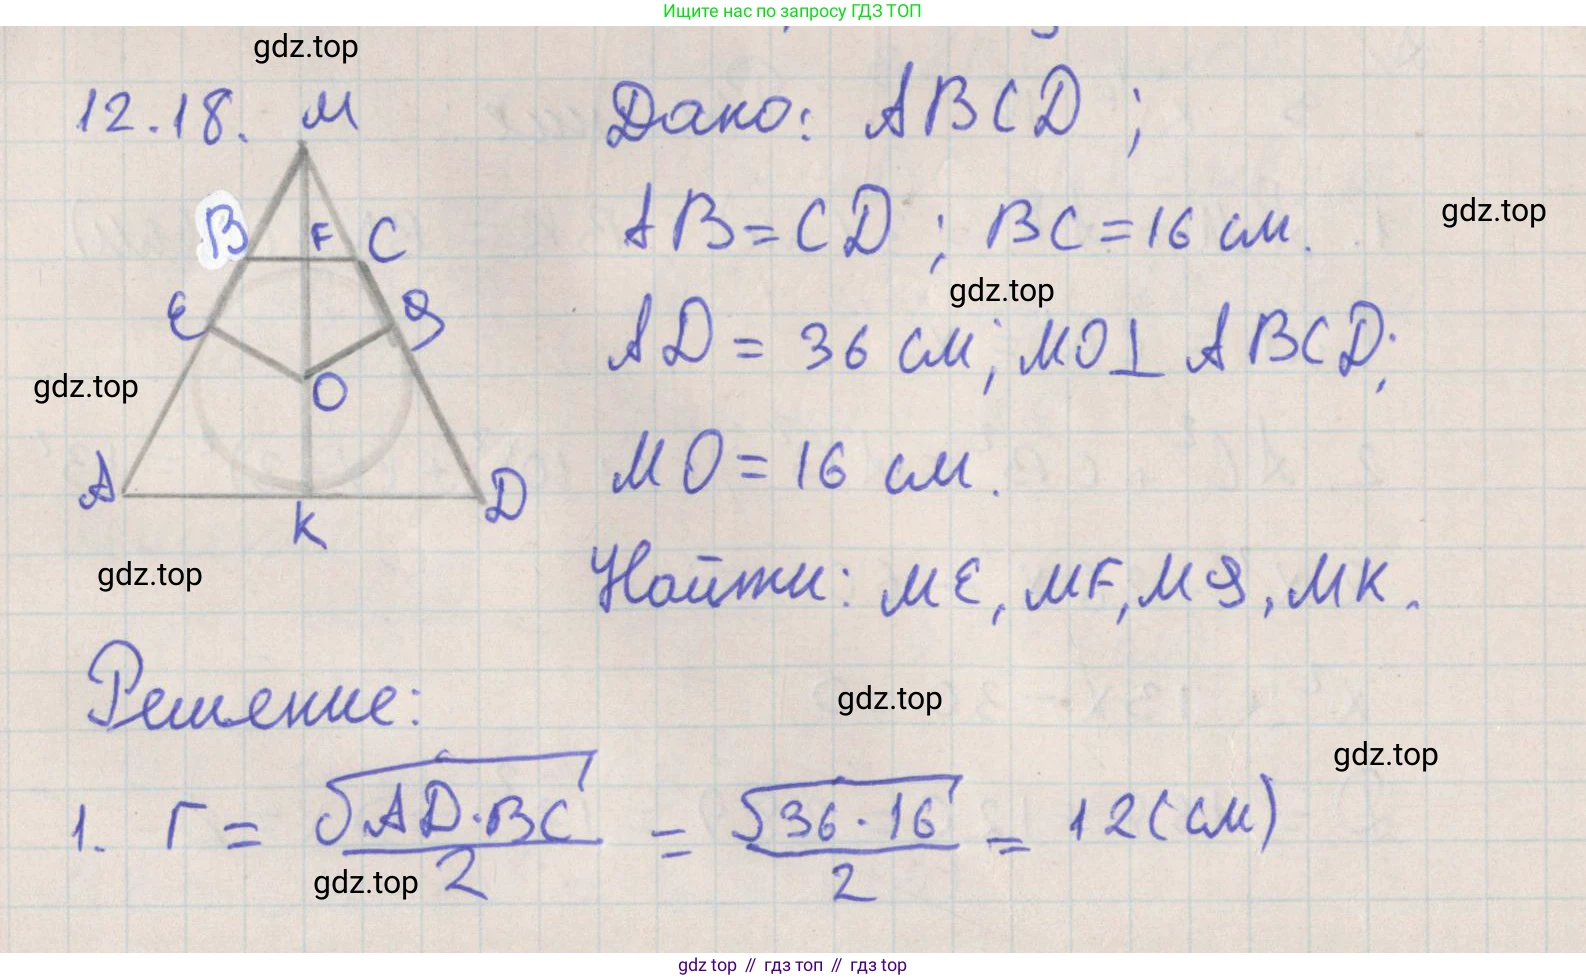 Ищите нас по запросу ГДЗ ТОП
gdz.top
12.18. М
Дано: ABCD ;
B F C
AB = CD ; BC = 16 см.
gdz.top
gdz.top
E 9
AD = 36 см; MO ⊥ ABCD;
gdz.top
O
MO = 16 см.
A D
K
gdz.top
Найти: ME, MF, M9, MK.
Решение:
gdz.top
gdz.top
1. r = √AD·BC / 2 = √36·16 / 2 = 12 (см)
gdz.top
gdz top // гдз топ // gdz top